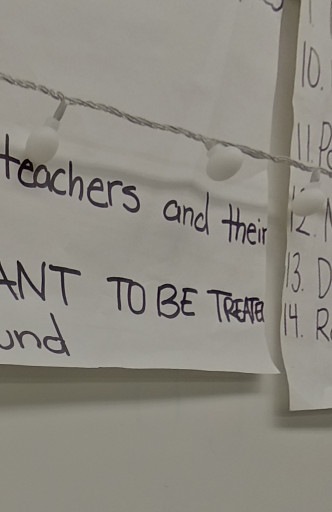 teachers and their
ANT TO BE TREATED
und
10.
11. P
12. N
13. D
14. R